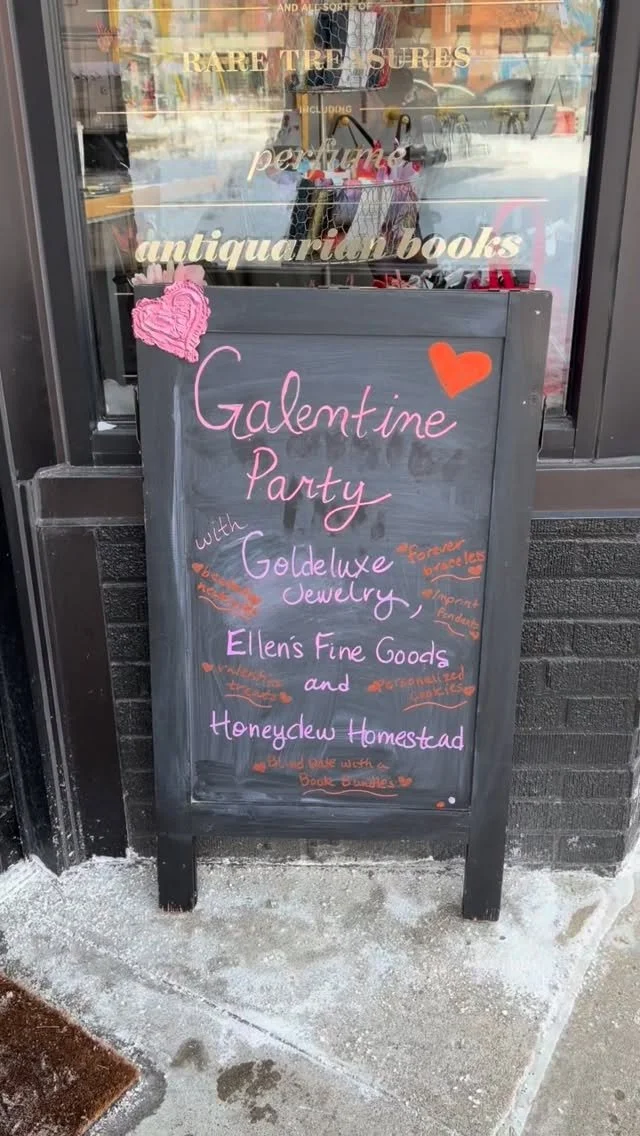 AND ALL SORTS OF
RARE TREASURES
INCLUDING
perfume
antiquarian books
Galentine
Party
with
Goldeluxe
Jewelry,
forever
bracelets
imprint
Pendants
Ellen's Fine Goods
and
valentine
treats
Personalized
Cookies
Honeydew Homestead
Blind Date with a
Book Bundles